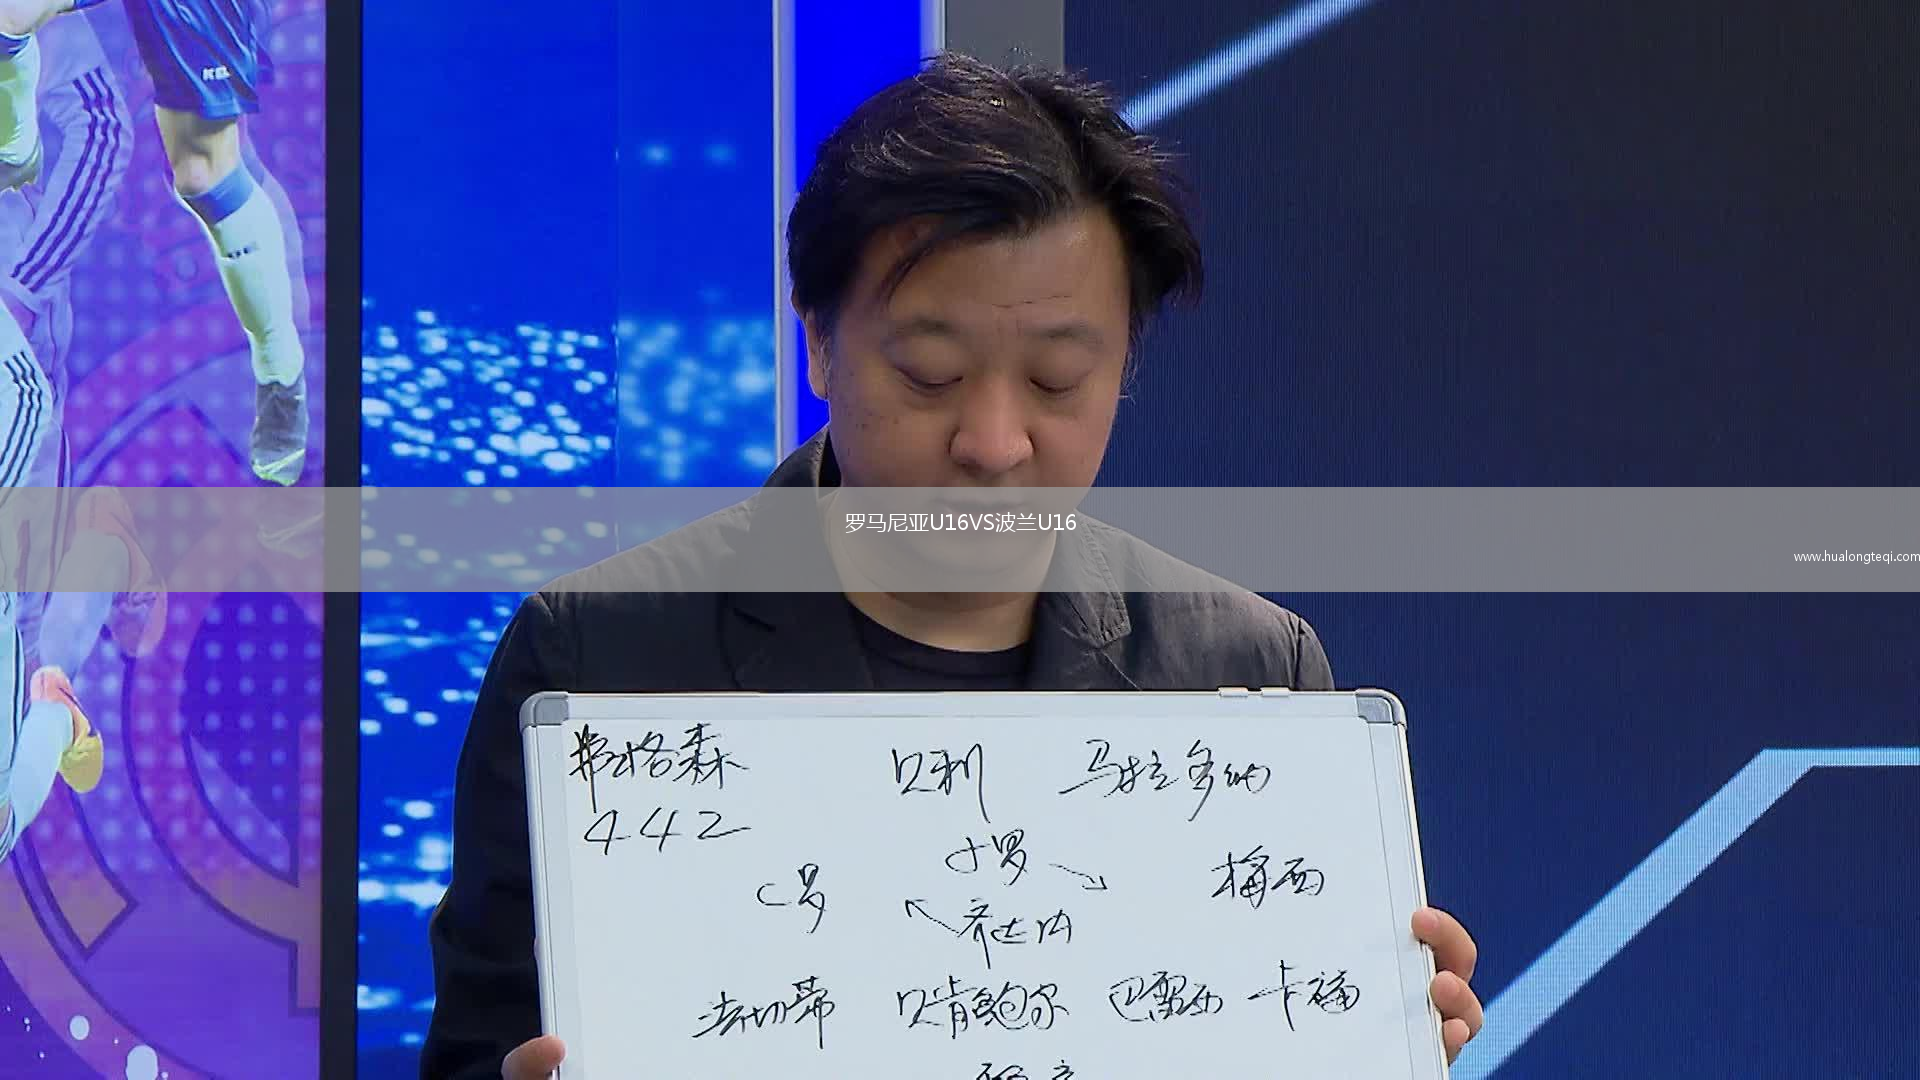 罗马尼亚U16VS波兰U16
www.hualongteqi.com
弗格森 贝利 马拉多纳
442
小罗
C罗 梅西
齐达内
法切蒂 贝肯鲍尔 巴雷西 卡福